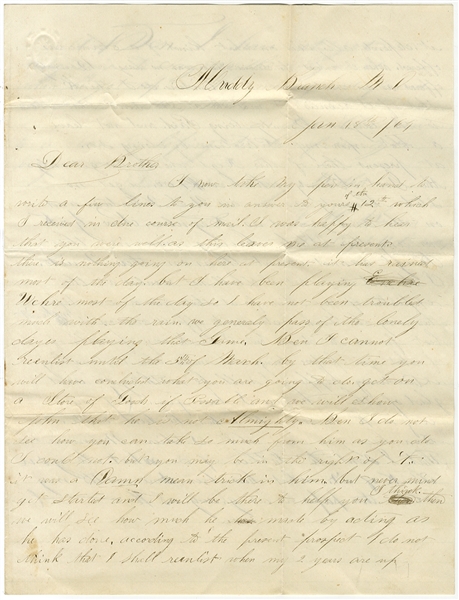 Muddy Branch Md
Jan 19th /64
Dear Brother
I now take my pen in hand to
write a few lines to you in answer to yours of the 12th which
I received in due course of mail. I was happy to hear
that you were well as this leaves me at present
there is nothing going on here at present it has rained
most of the day. but I have been playing
Uchre most of the day so I have not been troubled
much with the rain we generally pass of the lonely
dayes playing that Game. Ben I cannot
reenlist until the of March. by that time you
will have concluded what you are going to do get on
a of and we will show
John that he is not Almighty. Ben I do not
see how you can take so much from him as you do
I could not. but you may be in the right of it.
it was a Damd mean trick in him but never mind
get started and I will be there to help you I think then
we will see how much he made by acting as
he has done, according to the present prospect I do not
think that I shall reenlist when my 2 years are up